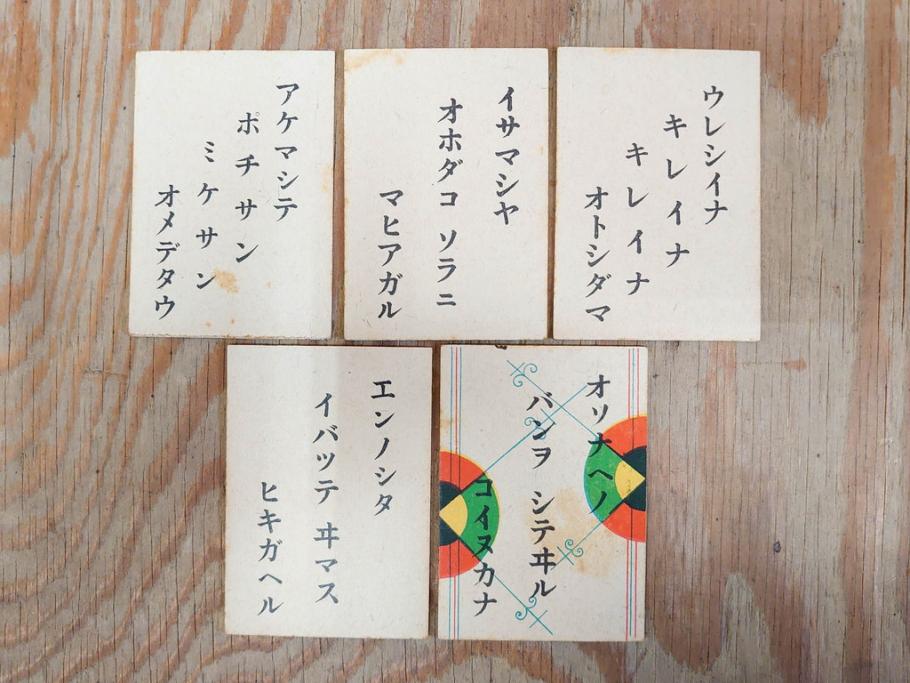 アケマシテ
ポチサン
ミケサン
オメデタウ
イサマシヤ
オホダコ ソラニ
マヒアガル
ウレシイナ
キレイナ
キレイナ
オトシダマ
エンノシタ
イバツテ ヰマス
ヒキガヘル
オソナヘノ
バンヲ シテヰル
コイヌカナ